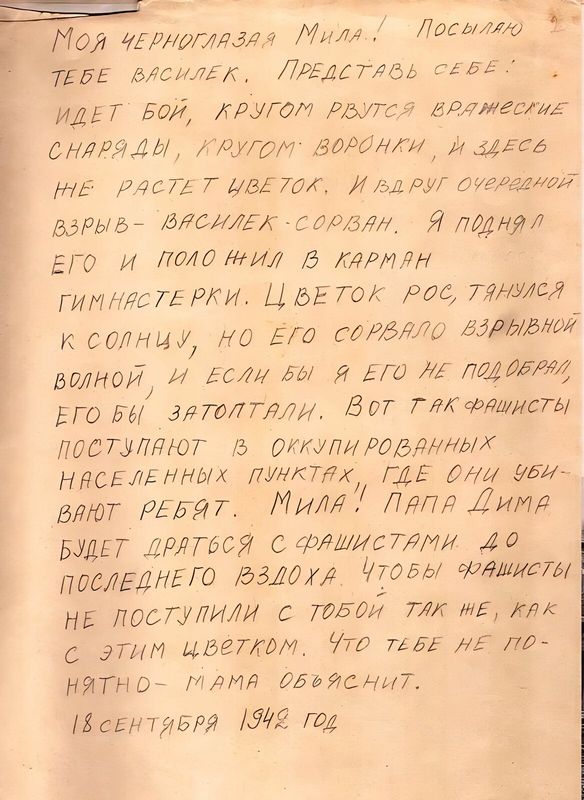 1
Моя черноглазая Мила! Посылаю
тебе василек. Представь себе:
идет бой, кругом рвутся вражеские
снаряды, кругом воронки, и здесь
же растет цветок. И вдруг очередной
взрыв – василек сорван. Я поднял
его и положил в карман
гимнастерки. Цветок рос, тянулся
к солнцу, но его сорвало взрывной
волной, и если бы я его не подобрал,
его бы затоптали. Вот так фашисты
поступают в оккупированных
населенных пунктах, где они уби-
вают ребят. Мила! Папа Дима
будет драться с фашистами до
последнего вздоха. Чтобы фашисты
не поступили с тобой так же, как
с этим цветком. Что тебе не по-
нятно – мама объяснит.
18 сентября 1942 год